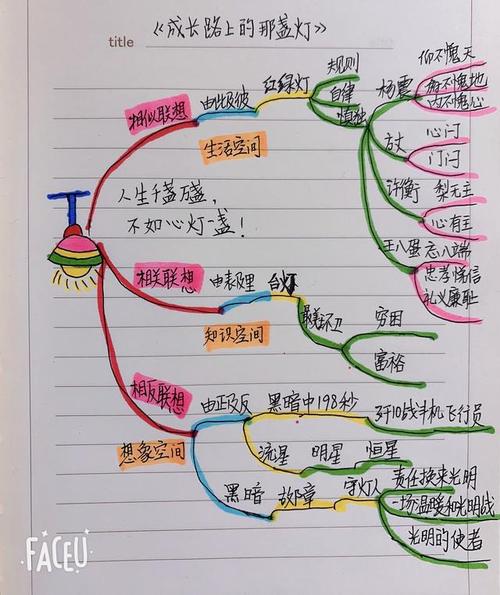 title
《成长路上的那盏灯》
相似联想
由此及彼
红绿灯
规则
自律
慎独
杨震
仰不愧天
俯不愧地
内不愧心
方丈
心闩
门闩
许衡
梨无主
心有主
王八蛋
忘八端
忠孝悌信
礼义廉耻
生活空间
人生千盏万盏,
不如心灯一盏!
相关联想
由表及里
台灯
最美环卫
穷困
富裕
知识空间
相反联想
由正及反
黑暗中198秒
歼10战斗机飞行员
流星
明星
恒星
想象空间
黑暗
故障
守灯人
责任换来光明
一场温暖和光明战
光明的使者
FACEU